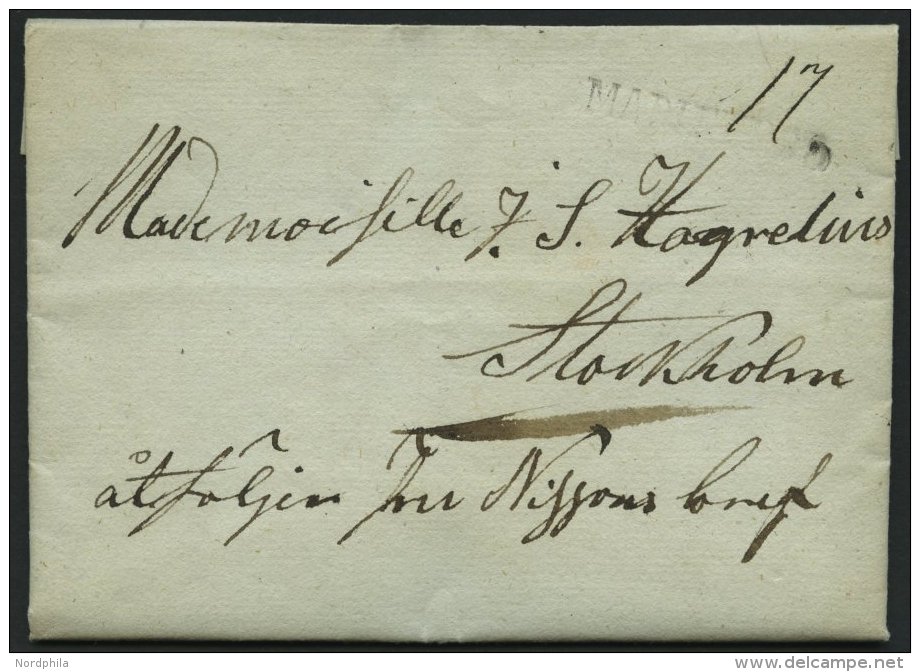 17
Mademoiselle J. S. Hagrelius
Stockholm
åtföljer Fru Nissons bref
Nordphila
www.delcampe.net